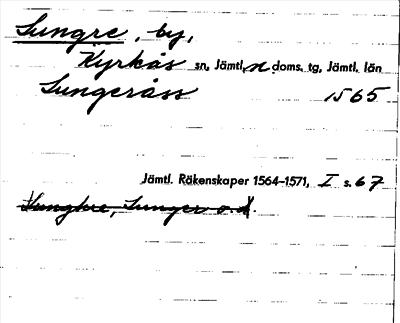 Sungre, by,
Kyrkås sn, Jämtl. n doms. tg, Jämtl. län
Sungeråss 1565
Jämtl. Räkenskaper 1564–1571, I s. 67
Sunger o. d.